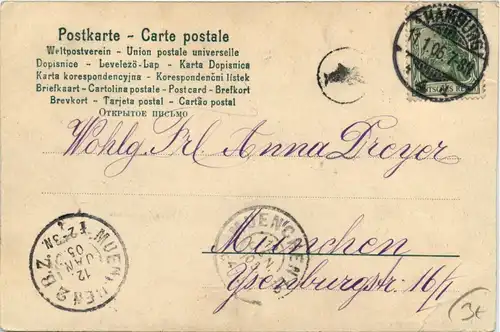 Postkarte - Carte postale
Weltpostverein - Union postale universelle
Dopisnice - Levelező-Lap - Karta Dopisnica
Karta korespondencyjna - Korespondenční listek
Briefkaart - Cartolina postale - Postcard - Brefkort
Brevkort - Tarjeta postal - Cartão postal
Открытое письмо
HAMBURG
1.05.7-8N
Wohlg Frl Anna Dreyer
MUENCHEN
München
MUENCHEN 2 B.Z.
12 JAN 05
2-3N.
16/I
3€